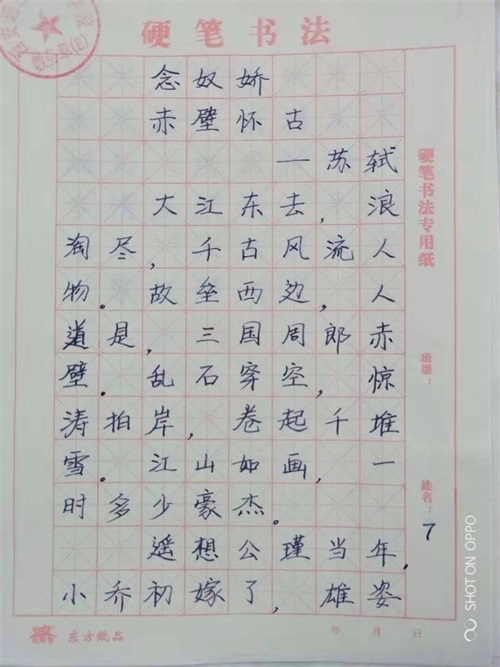 硬笔书法
念奴娇
赤壁怀古
—苏轼
大江东去，浪
淘尽，千古风流人
物。故垒西边，人
道是，三国周郎赤
壁。乱石穿空，惊
涛拍岸，卷起千堆
雪。江山如画，一
时多少豪杰。
遥想公瑾当年，
小乔初嫁了，雄姿
硬笔书法专用纸
班级：
姓名：
7
东方纸品
年 月 日
SHOT ON OPPO